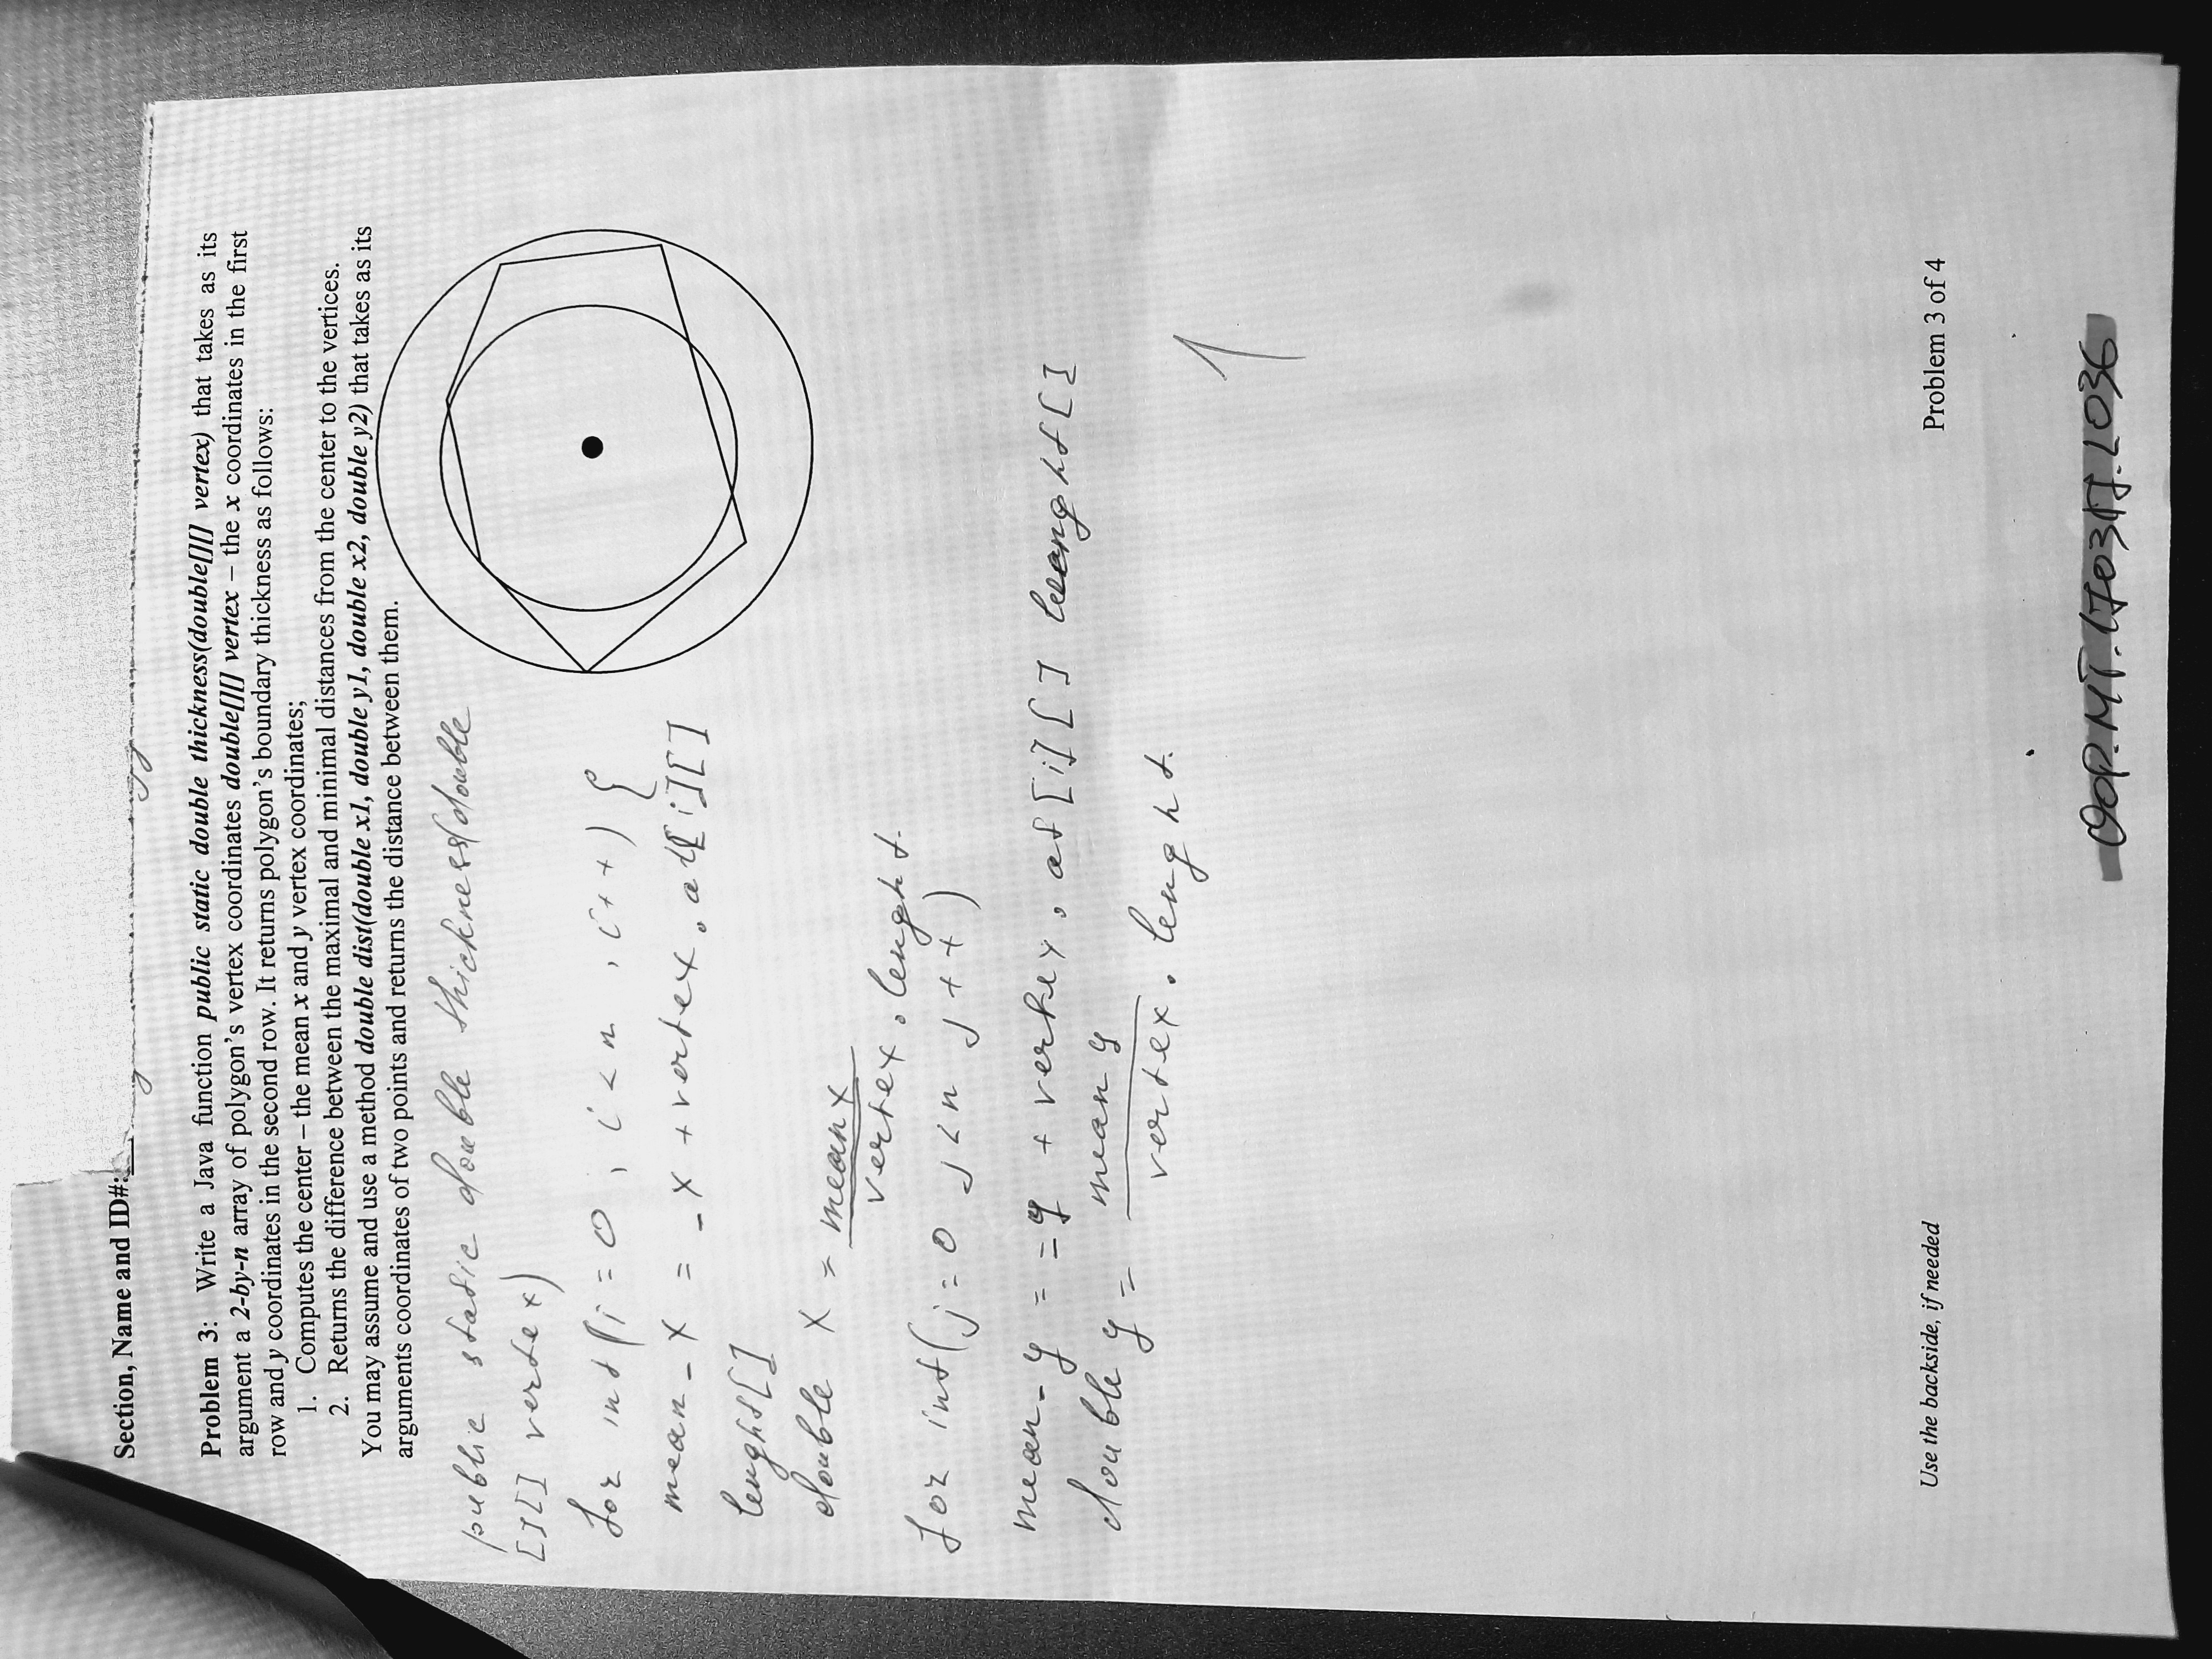 Section, Name and ID#:
Problem 3: Write a Java function public static double thickness(double[][] vertex) that takes as its
argument a 2-by-n array of polygon's vertex coordinates double[][] vertex – the x coordinates in the first
row and y coordinates in the second row. It returns polygon's boundary thickness as follows:
1. Computes the center – the mean x and y vertex coordinates;
2. Returns the difference between the maximal and minimal distances from the center to the vertices.
You may assume and use a method double dist(double x1, double y1, double x2, double y2) that takes as its
arguments coordinates of two points and returns the distance between them.
public static double thickness(double
[][] vertex)
for int(i = 0 , i < n , i++) {
mean_x = _x + vertex.at[i][]
lenght[]
double x = mean x
vertex.lenght.
for int(j = 0 j < n j++)
mean_y = =y + vertex.at[i][] lenght[]
double y = mean y
vertex.lenght.
1
Use the backside, if needed
Problem 3 of 4
OOP.MT.170317.L036